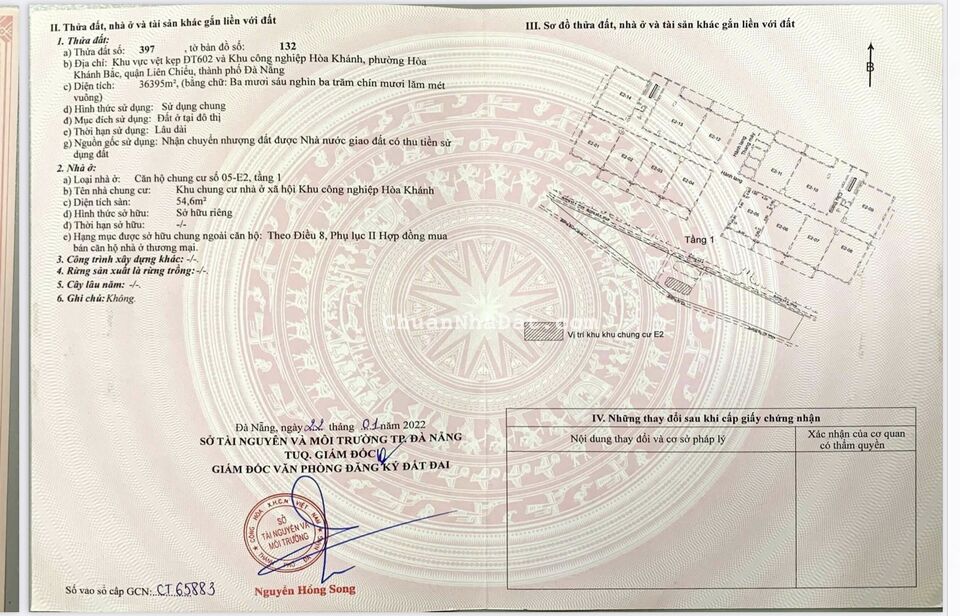 II. Thửa đất, nhà ở và tài sản khác gắn liền với đất
1. Thửa đất:
a) Thửa đất số: 397 , tờ bản đồ số: 132
b) Địa chỉ: Khu vực vệt kẹp ĐT602 và Khu công nghiệp Hòa Khánh, phường Hòa
Khánh Bắc, quận Liên Chiểu, thành phố Đà Nẵng
c) Diện tích: 36395m², (bằng chữ: Ba mươi sáu nghìn ba trăm chín mươi lăm mét
vuông)
d) Hình thức sử dụng: Sử dụng chung
đ) Mục đích sử dụng: Đất ở tại đô thị
e) Thời hạn sử dụng: Lâu dài
g) Nguồn gốc sử dụng: Nhận chuyển nhượng đất được Nhà nước giao đất có thu tiền sử
dụng đất
2. Nhà ở:
a) Loại nhà ở: Căn hộ chung cư số 05-E2, tầng 1
b) Tên nhà chung cư: Khu chung cư nhà ở xã hội Khu công nghiệp Hòa Khánh
c) Diện tích sàn: 54,6m²
d) Hình thức sở hữu: Sở hữu riêng
đ) Thời hạn sở hữu: -/-
e) Hạng mục được sở hữu chung ngoài căn hộ: Theo Điều 8, Phụ lục II Hợp đồng mua
bán căn hộ nhà ở thương mại.
3. Công trình xây dựng khác: -/-
4. Rừng sản xuất là rừng trồng:-/-.
5. Cây lâu năm: -/-.
6. Ghi chú:Không.
Đà Nẵng, ngày 22 tháng 01 năm 2022
SỞ TÀI NGUYÊN VÀ MÔI TRƯỜNG TP. ĐÀ NẴNG
TUQ. GIÁM ĐỐC
GIÁM ĐỐC VĂN PHÒNG ĐĂNG KÝ ĐẤT ĐAI
CỘNG HÒA X.H.C.N VIỆT NAM
SỞ
TÀI NGUYÊN VÀ
MÔI TRƯỜNG
Nguyễn Hồng Song
Số vào sổ cấp GCN: CT65883
III. Sơ đồ thửa đất, nhà ở và tài sản khác gắn liền với đất
B
E2-14
E2-13
E2-12
Hành lang
Thang máy
E2-11
E2-10
E2-09
E2-04
Hành lang
E2-05
E2-06
E2-07
E2-08
Tầng 1
Vị trí khu khu chung cư E2
ChuanNhaDat.com
IV. Những thay đổi sau khi cấp giấy chứng nhận
Nội dung thay đổi và cơ sở pháp lý
Xác nhận của cơ quan
có thẩm quyền